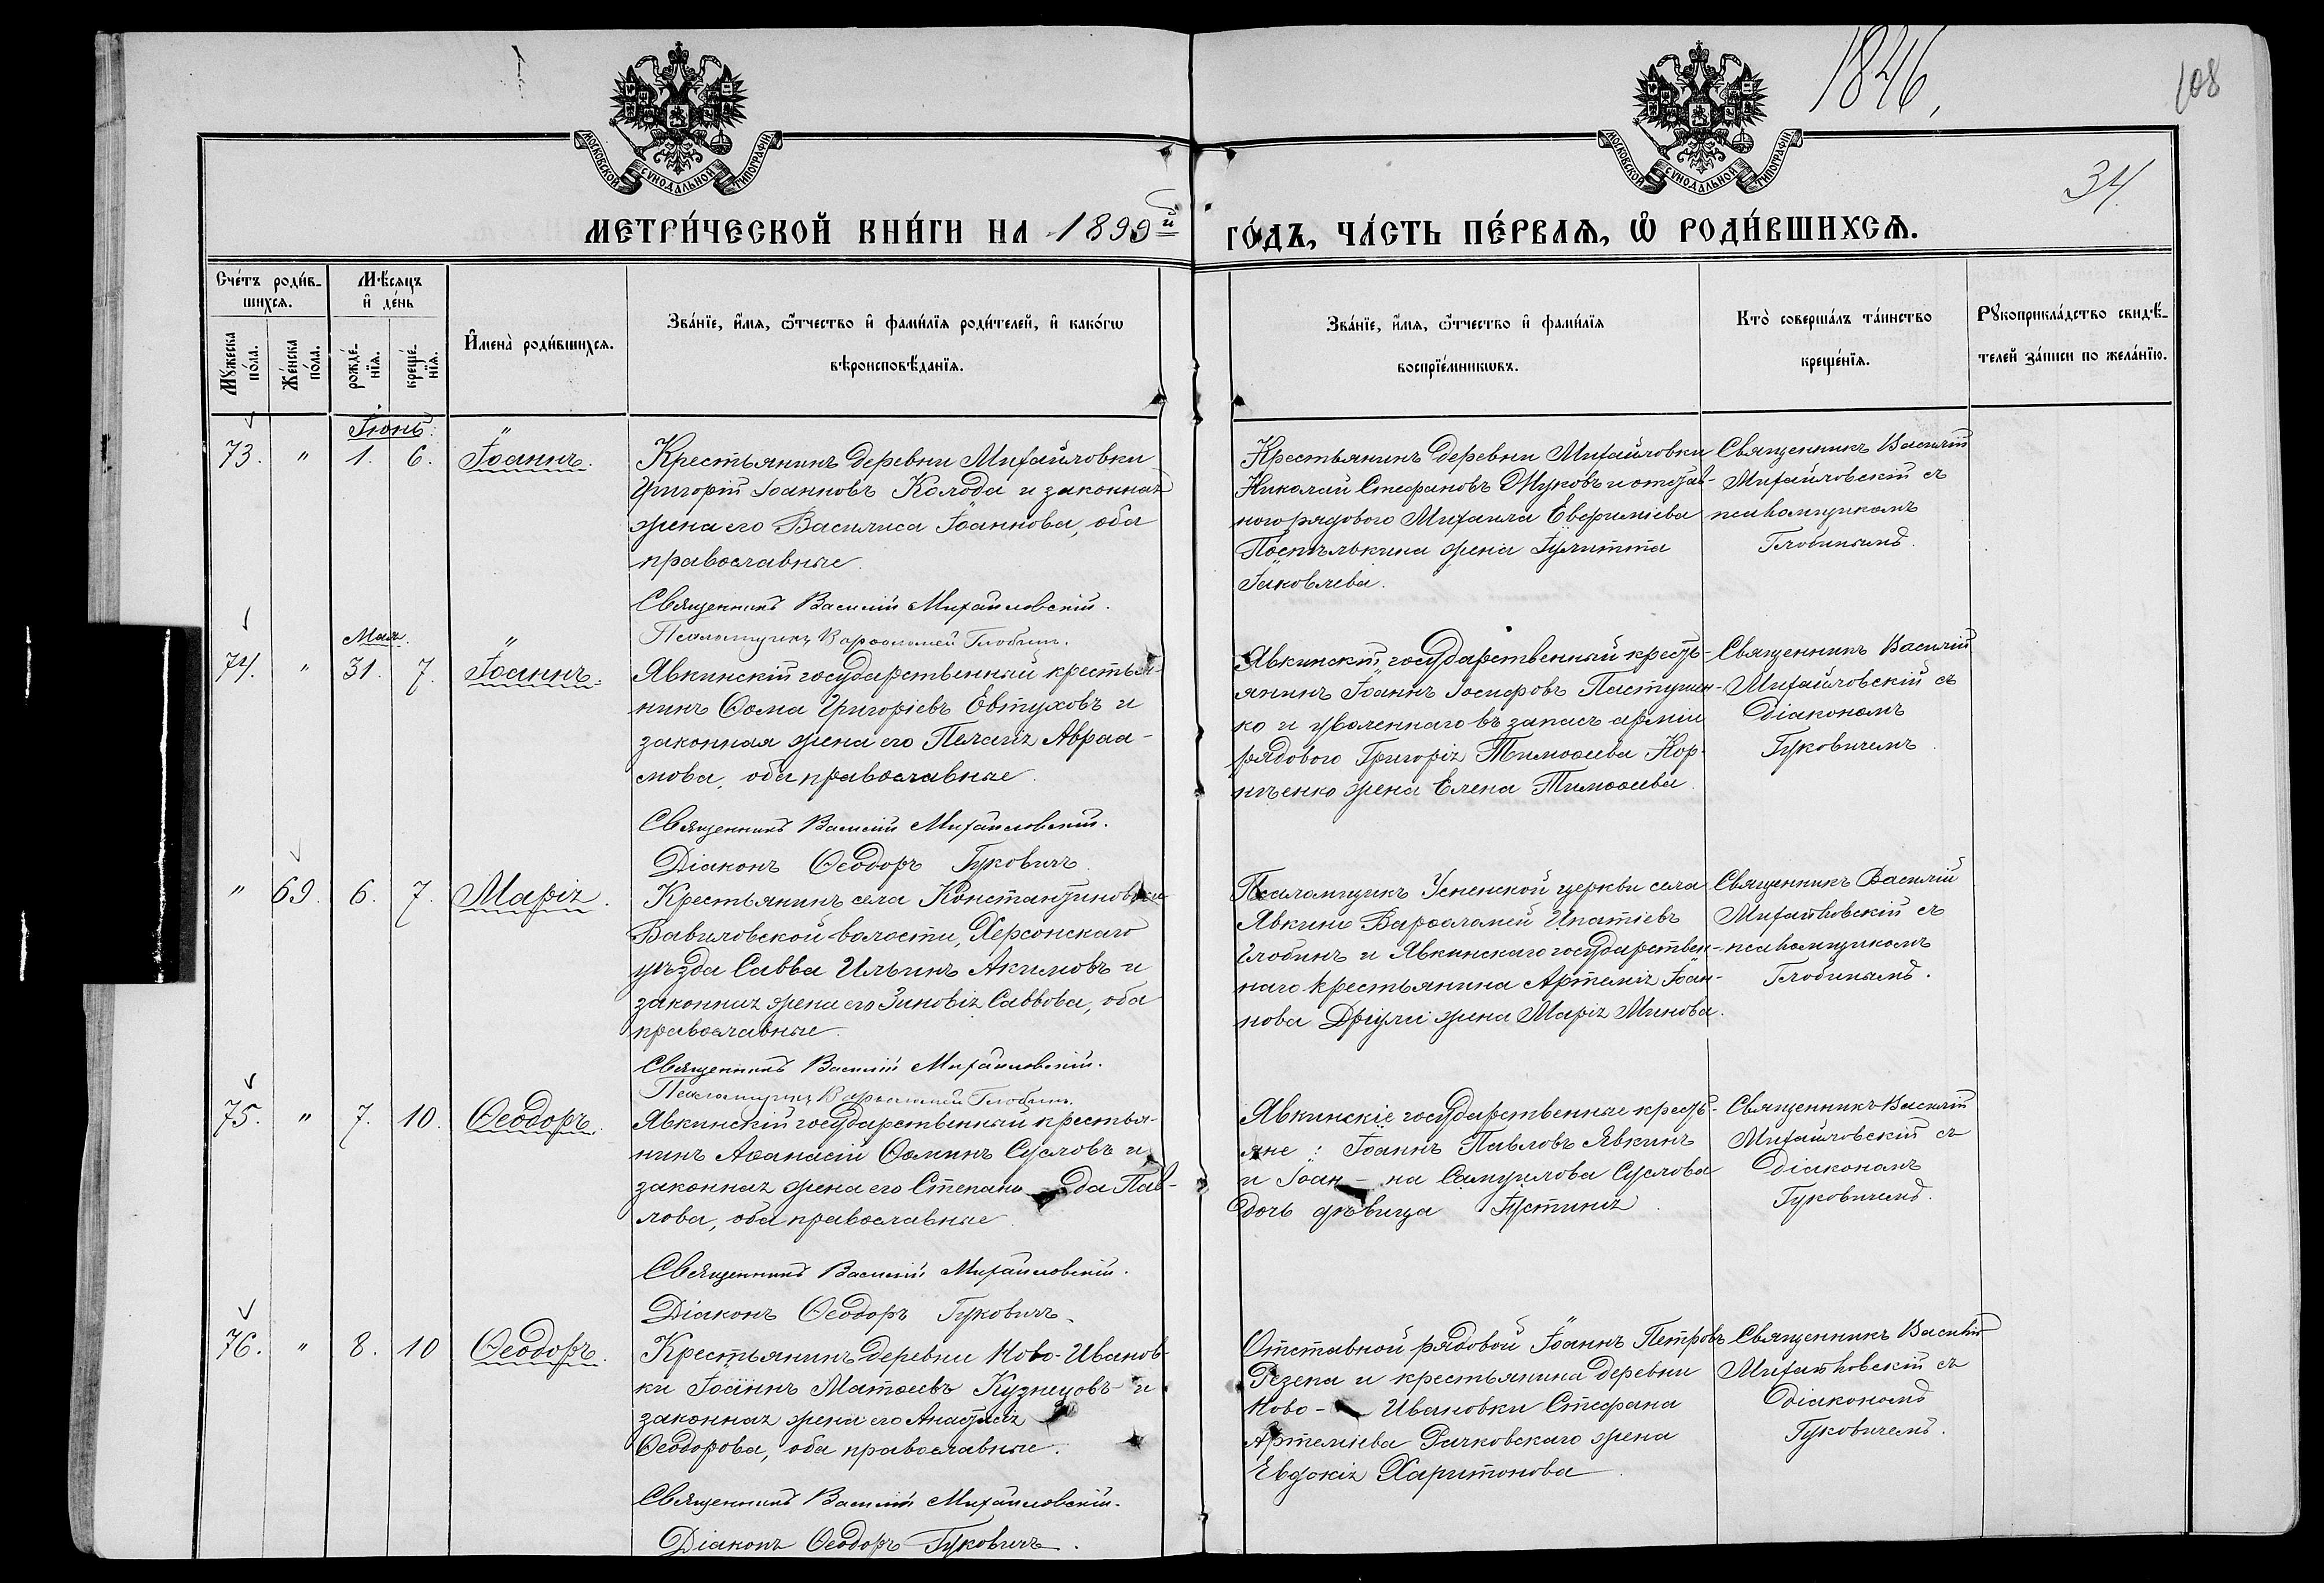 1846,
108
34.
МОСКОВСКОЙ СѴНОДАЛЬНОЙ ТИПОГРАФІИ
МОСКОВСКОЙ СѴНОДАЛЬНОЙ ТИПОГРАФІИ
МЕТРИ́ЧЕСКОЙ КНИ́ГИ НА 1899й ГО́ДЪ, ЧА́СТЬ ПЕ́РВАѦ, Ѡ РОДИ́ВШИХСѦ.
Сче́тъ роди́в-
шихсѧ.
Мꙋ́жеска по́ла.
Же́нска по́ла.
Мѣ́сяцъ
и҆ де́нь
рожде́-
нїѧ.
креще́-
нїѧ.
И҆мена̀ роди́вшихсѧ.
Зва́нїе, и҆́мѧ, ѻ҆́тчество и҆ фами́лїѧ роди́телей, и҆ како́гѡ
вѣроисповѣ́данїѧ.
Зва́нїе, и҆́мѧ, ѻ҆́тчество и҆ фами́лїѧ
воспрїе́мникѡвъ.
Кто̀ соверша́лъ та́инство
креще́нїѧ.
Рꙋкоприкла́дство свидѣ́-
телей за́писи по жела́нїю.
Іюнь.
73. " 1. 6. Іоаннъ.
Крестьянинъ деревни Михайловки
Григорій Іоанновъ Колода и законная
жена его Василиса Іоаннова, оба
православные.
Священникъ Василій Михайловскій.
Псаломщикъ Варѳоломей Глобинъ.
Крестьянинъ деревни Михайловки
Николай Стефановъ Жуковъ и отстав-
ного рядового Михаила Евфиміева
Поспѣлькина жена Іулитта
Іаковлева.
Священникъ Василій
Михайловскій съ
псаломщикомъ
Глобинымъ.
Мая.
74. " 31. 7. Іоаннъ.
Явкинскій государственный крестья-
нинъ Ѳома Григоріевъ Евтуховъ и
законная жена его Пелагія Авраа-
мова, оба православные.
Священникъ Василій Михайловскій.
Діаконъ Ѳеодоръ Гуковичъ
Явкинскій государственный кресть-
янинъ Іоаннъ Іосифовъ Пастушен-
ко и уволеннаго въ запасъ арміи
рядового Григорія Тимоѳеева Кор-
нѣенко жена Елена Тимоѳеева.
Священникъ Василій
Михайловскій съ
діакономъ
Гуковичемъ.
" 69. 6. 7. Марія.
Крестьянинъ села Константиновки
Вавиловской волости, Херсонскаго
уѣзда Савва Ильинъ Акимовъ и
законная жена его Зиновія Саввова, оба
православные.
Священникъ Василій Михайловскій.
Псаломщикъ Варѳоломей Глобинъ.
Псаломщикъ Успенской церкви села
Явкино Варѳоломей Ипатіевъ
Глобинъ и Явкинскаго государствен-
наго крестьянина Артемія Іоан-
нова жена Марія Минова.
Священникъ Василій
Михайловскій съ
псаломщикомъ
Глобинымъ.
75. " 7. 10. Ѳеодоръ.
Явкинскій государственный крестья-
нинъ Аѳанасій Ѳоминъ Сусловъ и
законная жена его Степани - да Пав-
лова, оба православные.
Священникъ Василій Михайловскій.
Діаконъ Ѳеодоръ Гуковичъ.
Явкинскіе государственные кресть-
яне: Іоаннъ Павловъ Явкинъ
и Іоан - на Самуилова Суслова
дочь дѣвица Іустинія.
Священникъ Василій
Михайловскій съ
діакономъ
Гуковичемъ.
76. " 8. 10 Ѳеодоръ.
Крестьянинъ деревни Ново-Иванов-
ки Іоаннъ Матѳеевъ Кузнецовъ и
законная жена его Анастасія
Ѳеодорова, оба православные.
Священникъ Василій Михайловскій.
Діаконъ Ѳеодоръ Гуковичъ.
Отставной рядовой Іоаннъ Петровъ
Резепа и крестьянина деревни
Ново - Ивановки Стефана
Артеміева Рачковскаго жена
Евдокія Харитонова.
Священникъ Василій
Михайловскій съ
діакономъ
Гуковичемъ.